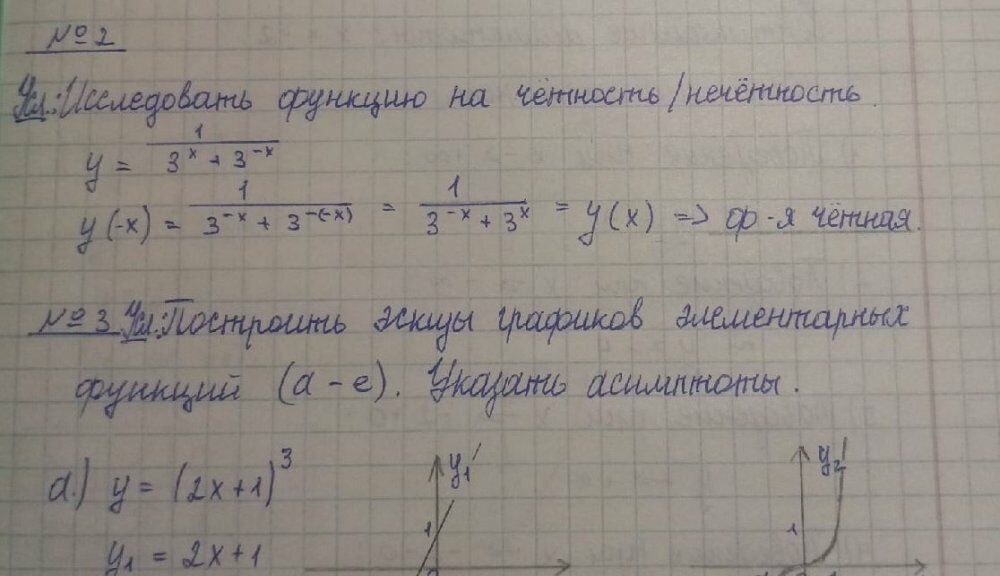 №2
Усл.: Исследовать функцию на чётность/нечётность.
y = 1/(3^x + 3^-x)
y(-x) = 1/(3^-x + 3^-(-x)) = 1/(3^-x + 3^x) = y(x) => ф-я чётная.
№3 Усл.: Построить эскизы графиков элементарных
функций (а-е). Указать асимптоты.
а.) y = (2x+1)^3 y₁ y₂
1 1
y₁ = 2x+1